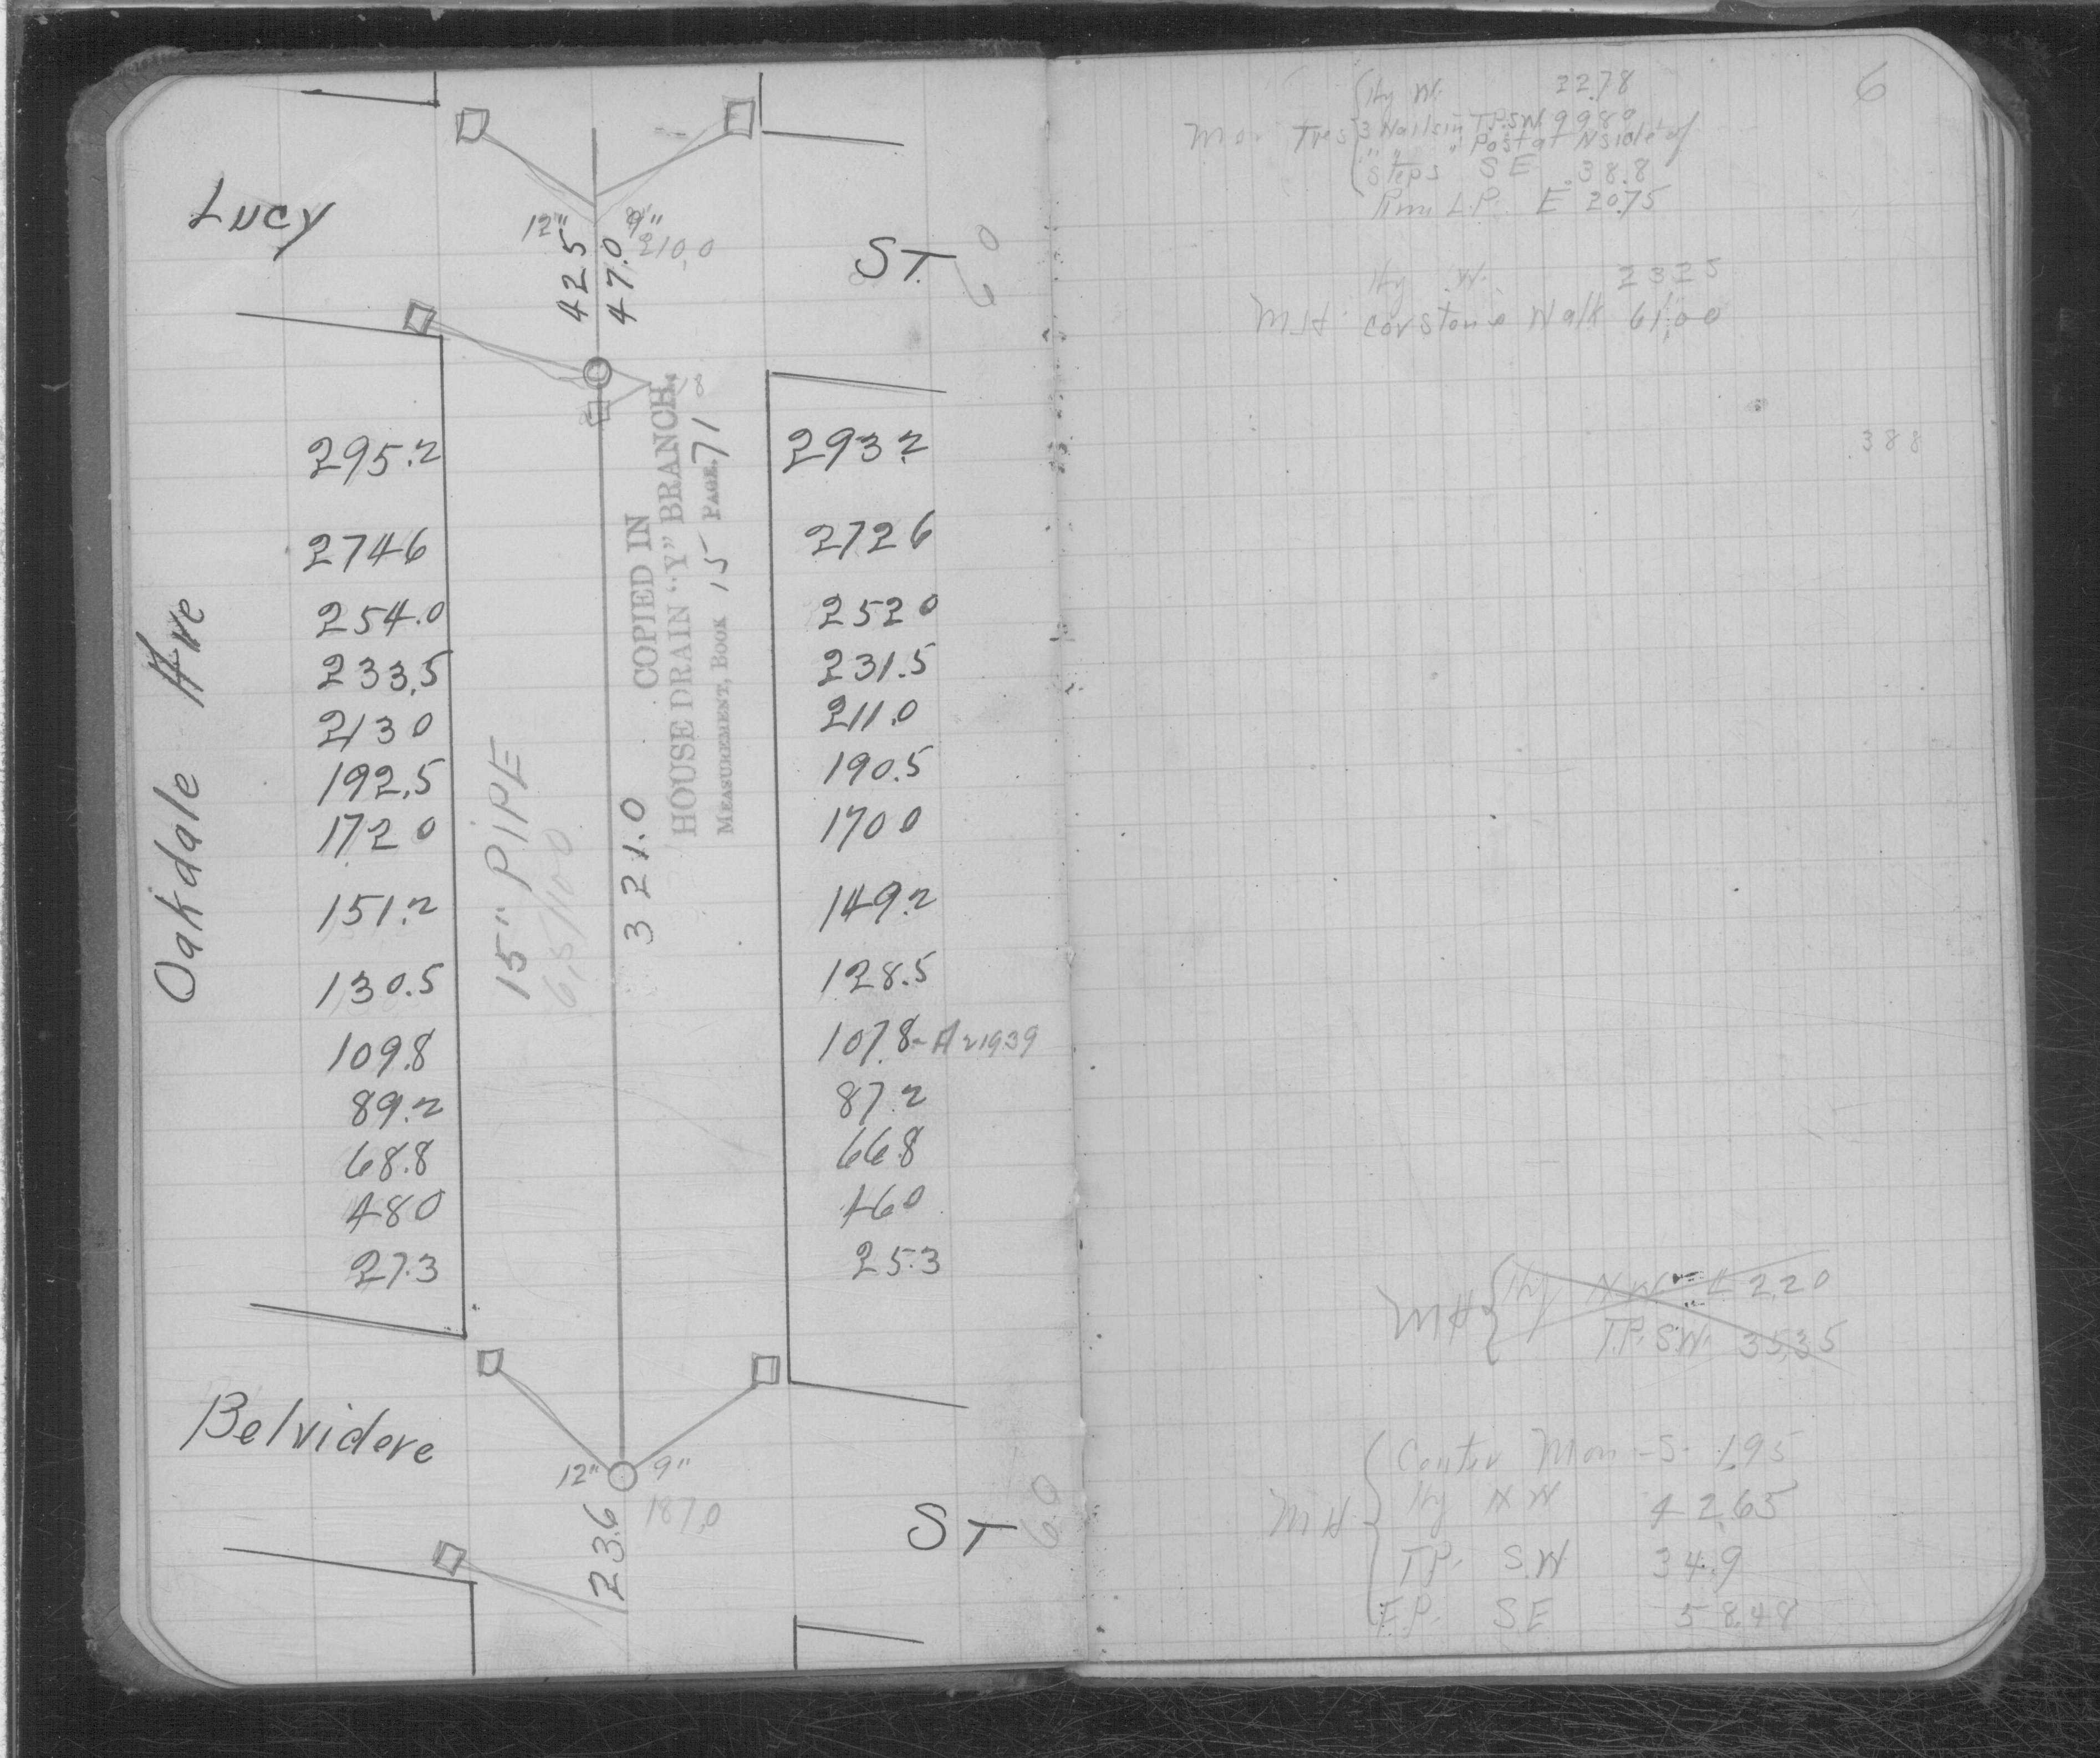 Lucy
ST.
60
12"
9"
210.0
42.5
47.0
18
295.2 2932
2746 2726
254.0 2520
233.5 231.5
2130 211.0
192.5 190.5
1720 1700
151.2 149.2
130.5 128.5
109.8 107.8-A21939
89.2 87.2
68.8 668
480 460
27.3 25.3
Oakdale Ave
15" PIPE
6.5/100
321.0
COPIED IN
HOUSE DRAIN "Y" BRANCH,
MEASUREMENT, BOOK 15 PAGE 71
Belvidere
ST
60
12"
9"
187.0
23.6
6
Hy W. 22.78
Mon Ties 3 Nails in T.P. SW 99.80
" " " Post at N side of
Steps SE 38.8
L.P. E 20.75
Hy W. 23.25
MH Cor stone Walk 61.00
388
MH Hy NW 42.20
T.P. S.W. 35.35
MH Center Mon -S- 1.95
Hy NW 42.65
T.P. S.W 34.9
F.P. SE 58.48